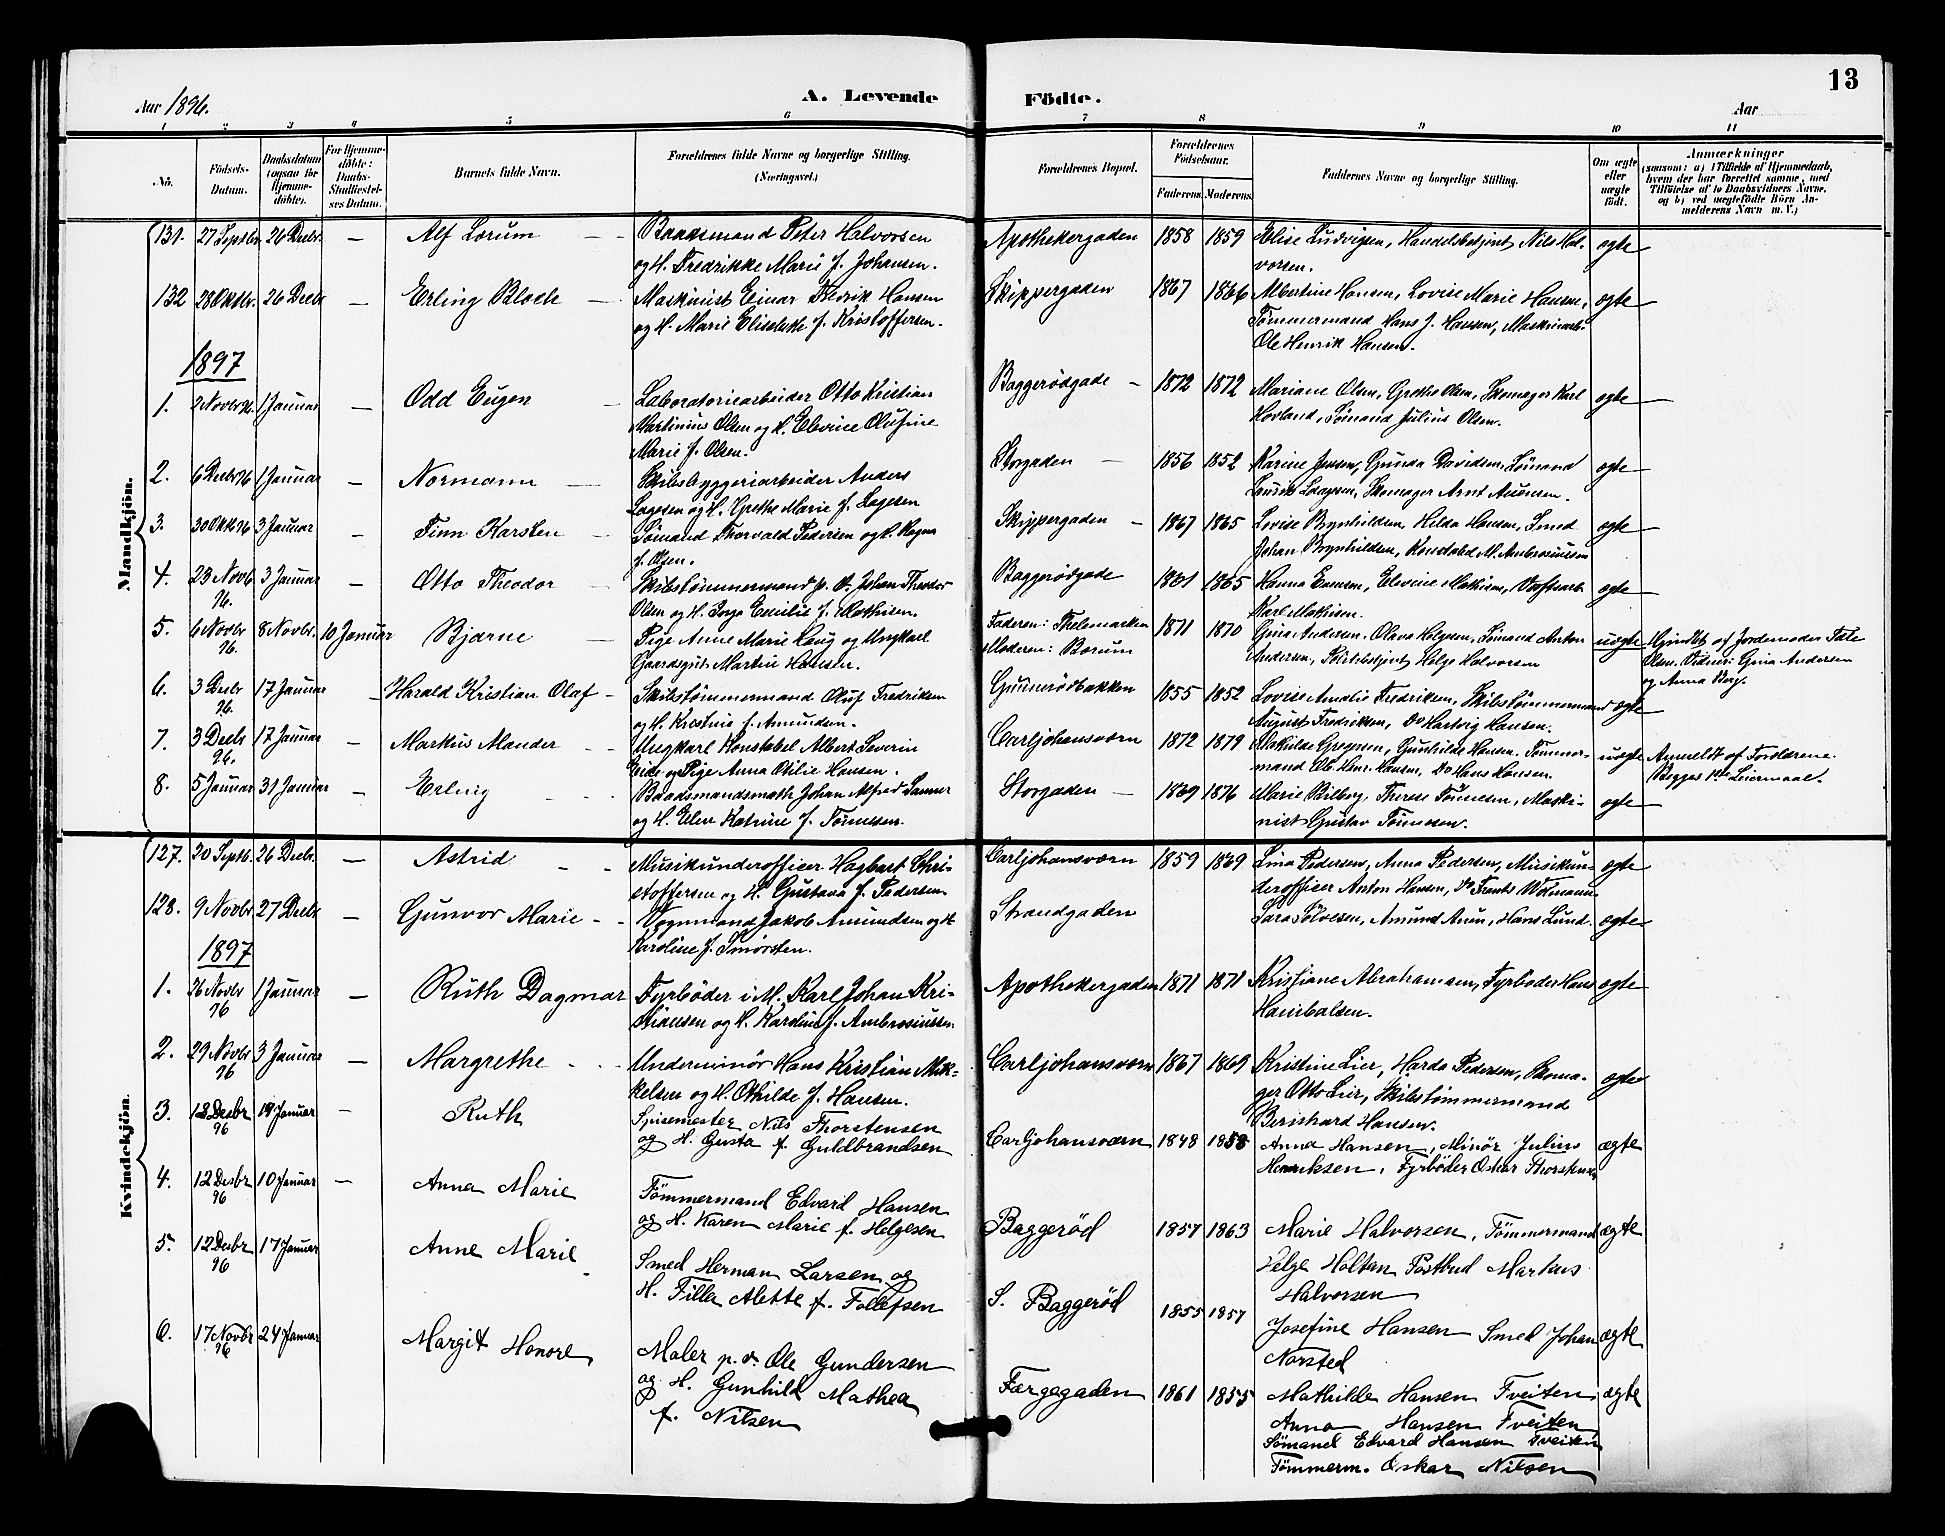 13
Aar 1896.
A. Levende Födte.
Aar
1 2 3 4 5 6 7 8 9 10 11
Nö.
Födsels-Datum.
Daabsdatum (ogsaa for Hjemme-döbte).
For Hjemme-döbte: Daabs-Stadfæstel-ses Datum.
Barnets fulde Navn.
Forældrenes fulde Navne og borgerlige Stilling.
(Næringsvei.)
Forældrenes Bopæl.
Forældrenes Födselsaar.
Faderens. Moderens.
Faddernes Navne og borgerlige Stilling.
Om ægte eller uægte födt.
Anmærkninger
(saasom: a) i Tilfælde af Hjemmedaab, hvem der har forrettet samme, med Tilföielse af to Daabsvidners Navne, og b) ved uægtefödte Börn An-melderens Navn m. V.)
Mandkjön.
131. 27 Septbr. 26 Decbr. — Alf Lorum — Baadsmand Peter Halvorsen
og H. Fredrikke Marie f. Johansen.
Apothekergaden 1858 1859 Elise Ludvigsen, Handelsbetjent Nils Hal-
vorsen. ægte
132 28 Oktbr. 26 Decbr — Erling Bloch — Maskinist Einar Fredrik Hansen
og H. Marie Elisabeth f. Kristoffersen.
Skippergaden 1867 1866 Albertine Hansen, Lovise Marie Hansen,
Tömmermand Hans J. Hansen, Maskinarb.
Ole Henrik Hansen. ægte
1897
1. 2 Novbr 96. 1 Januar — Odd Eugen — Laboratoriearbeider Otto Kristian
Martinius Olsen og H. Elevine Olufine
Marie f. Olsen.
Baggerødgade — 1872 1872 Mariane Olsen, Grethe Olsen, Skomager Karl
Hovland, Sømand Julius Olsen. ægte
2. 6 Decbr 96 1 Januar — Normann — Skibsbyggeriarbeider Anders
Lagesen og H. Grethe Marie f. Lagesen
Storgaden — 1856 1852 Karine Jensen, Gunda Davidsen, Sømand
Laurits Laagesen, Skomager Arnt Auensen. ægte
3. 30 Okt 96 3 Januar — Finn Karsten — Sømand Thorvald Pedersen og H. Ragna
f. Olsen.
Skippergaden — 1867 1865 Lovise Brynhildsen, Hilda Hansen, Smed
Johan Brynhildsen, Konstabel M. Ambrosiussen ægte
4. 29 Novb. 96. 3 Januar — Otto Theodor — Skibstømmermand p. v. Johan Theodor
Olsen og H. Inga Emilie f. Mathisen
Baggerødgade 1861 1865 Hanna Evensen, Elevine Mathisen, Værftsarb.
Karl Mathisen. ægte
5. 6 Novbr 96. 8 Novbr. 10 Januar Bjarne — Pige Anne Marie Haug og Ungkarl
Gaardsgut Martin Hansen.
Faderen: Thelemarken
Moderen: Borum
1871 1870 Gina Andersen, Olava Helgesen, Sømand Anton
Andersen, Skibsbetjent Helge Halvorsen uægte
Hjmdbt. af Jordemoder Tale
Olsen. Vidner: Gina Andersen
og Anna Berg.
6. 3 Decbr 96. 17 Januar — Harald Kristian Olaf — Skibstømmermand Oluf Fredriksen
og H. Kristine f. Amundsen.
Gunnerødbakken 1855 1852 Lovise Amalie Fredriksen, Skibstømmermand
August Fredriksen, Do Hartvig Hansen. ægte
7. 3 Decbr 96. 17 Januar — Markus Mander — Ungkarl Konstabel Albert Severin
Eide og Pige Anna Otilie Hansen.
Carljohansværn 1872 1879 Mathilde Gregersen, Gunhilde Hansen, Tømmer-
mand Ole Hmr. Hansen, Do Hans Hansen. uægte
Anmeldt af Forældrene.
Begges 1ste Leiermaal.
8. 5 Januar 31 Januar — Erling — Baadsmandsmath Johan Alfred Sanner
og H. Elen Katrine f. Tønnesen.
Storgaden — 1869 1876 Marie Bilberg, Therese Tønnesen, Maski-
nist Gustav Tønnesen. ægte
Kvindekjön.
127. 20 Septb. 26 Decbr. — Astrid — Musikunderofficer Hagbart Chri-
stoffersen og H. Gustava f. Pedersen
Carljohansværn 1859 1869 Lina Pedersen, Anna Pedersen, Musikun-
derofficer Anton Hansen, Do Frants Wolmann ægte
128. 9 Novbr. 27 Decbr — Gunvor Marie — Vognmand Jakob Amundsen og H.
Karoline f. Smørsten.
Strandgaden Sara Sølvesen, Amund Auen, Hans Lund. ægte
1897
1. 26 Novbr 96 1 Januar — Ruth Dagmar Fyrbøder i M. Karl Johan Kri-
stiansen og H. Karoline f. Ambrosiussen
Apothekergaden 1871 1871 Kristiane Abrahamsen, Fyrbøder Hans
Hanibalsen. ægte
2. 29 Novbr 96 3 Januar — Margrethe — Underminör Hans Kristian Mik-
kelsen og H. Othilde f. Hansen.
Carljohansværn 1867 1869 Kristine Lier, Harda Pedersen, Skoma-
ger Otto Lier, Skibstømmermand
Bernhard Hansen. ægte
3. 18 Decbr 96 19 Januar — Ruth Spisemester Nils Thorstensen
og H. Gusta f. Guldbrandsen
Carljohansværn 1848 1858 Anna Hansen, Minör Julius
Henriksen, Fyrböder Oskar Thorstensen ægte
4. 12 Desbr 96 10 Januar — Anna Marie Tömmermand Edvard Hansen
og H. Karen Marie f. Helgesen
Baggerød 1857 1863 Marie Halvorsen, Tömmermand
Helge Holtan Postbud Markus
Halvorsen ægte
5. 12 Desbr 96 17 Januar Anne Marie Smed Herman Larsen og
H. Filla Alette f. Tollefsen
S. Baggerød 1855 1857 Josefine Hansen Smed Johan
Norsted ægte
6. 17 Novbr 96 24 Januar Margit Honore Maler p. v. Ole Gundersen
og H. Gunhild Mathea
f. Nilsen
Færgegaden 1861 1855 Mathilde Hansen Tveiten,
Anna Hansen Tveiten
Sömand Edvard Hansen Tveiten
Tömmerm. Oskar Nilsen ægte